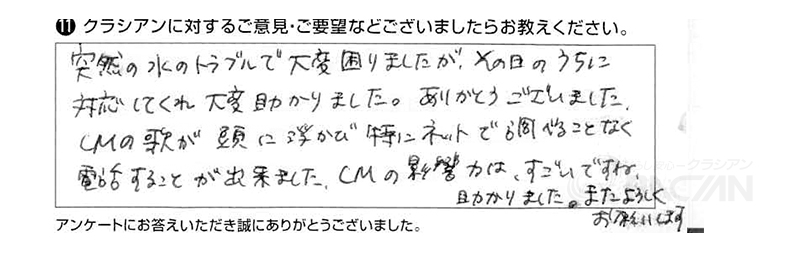 ⑪ クラシアンに対するご意見・ご要望などございましたらお教えください。
突然の水のトラブルで大変困りましたが、その日のうちに
対応してくれ大変助かりました。ありがとうございました。
CMの歌が頭に浮かび特にネットで調べることなく
電話することが出来ました。CMの影響力は、すごいですね。
助かりました。またよろしく
お願いします
アンケートにお答えいただき誠にありがとうございました。